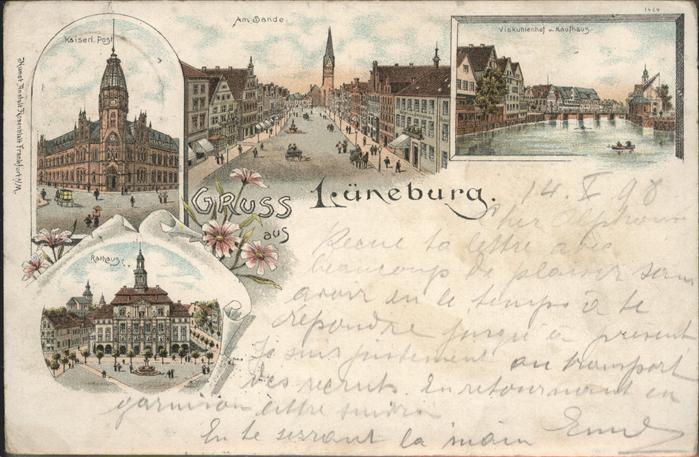 Kaiserl. Post
Am Sande
Viskuhlenhof u. Kaufhaus.
1424
Kunst Anstalt Rosenblatt Frankfurt a/M.
Gruss
aus
Lüneburg.
Rathaus
14. X 98
Recue ta lettre avec
beaucoup de plaisir sans
avoir eu le temps à te
répondre jusqu'à present
Je suis justement au transport
des recruts. En retournant en
garnison lettre suivra
En te serrant la main